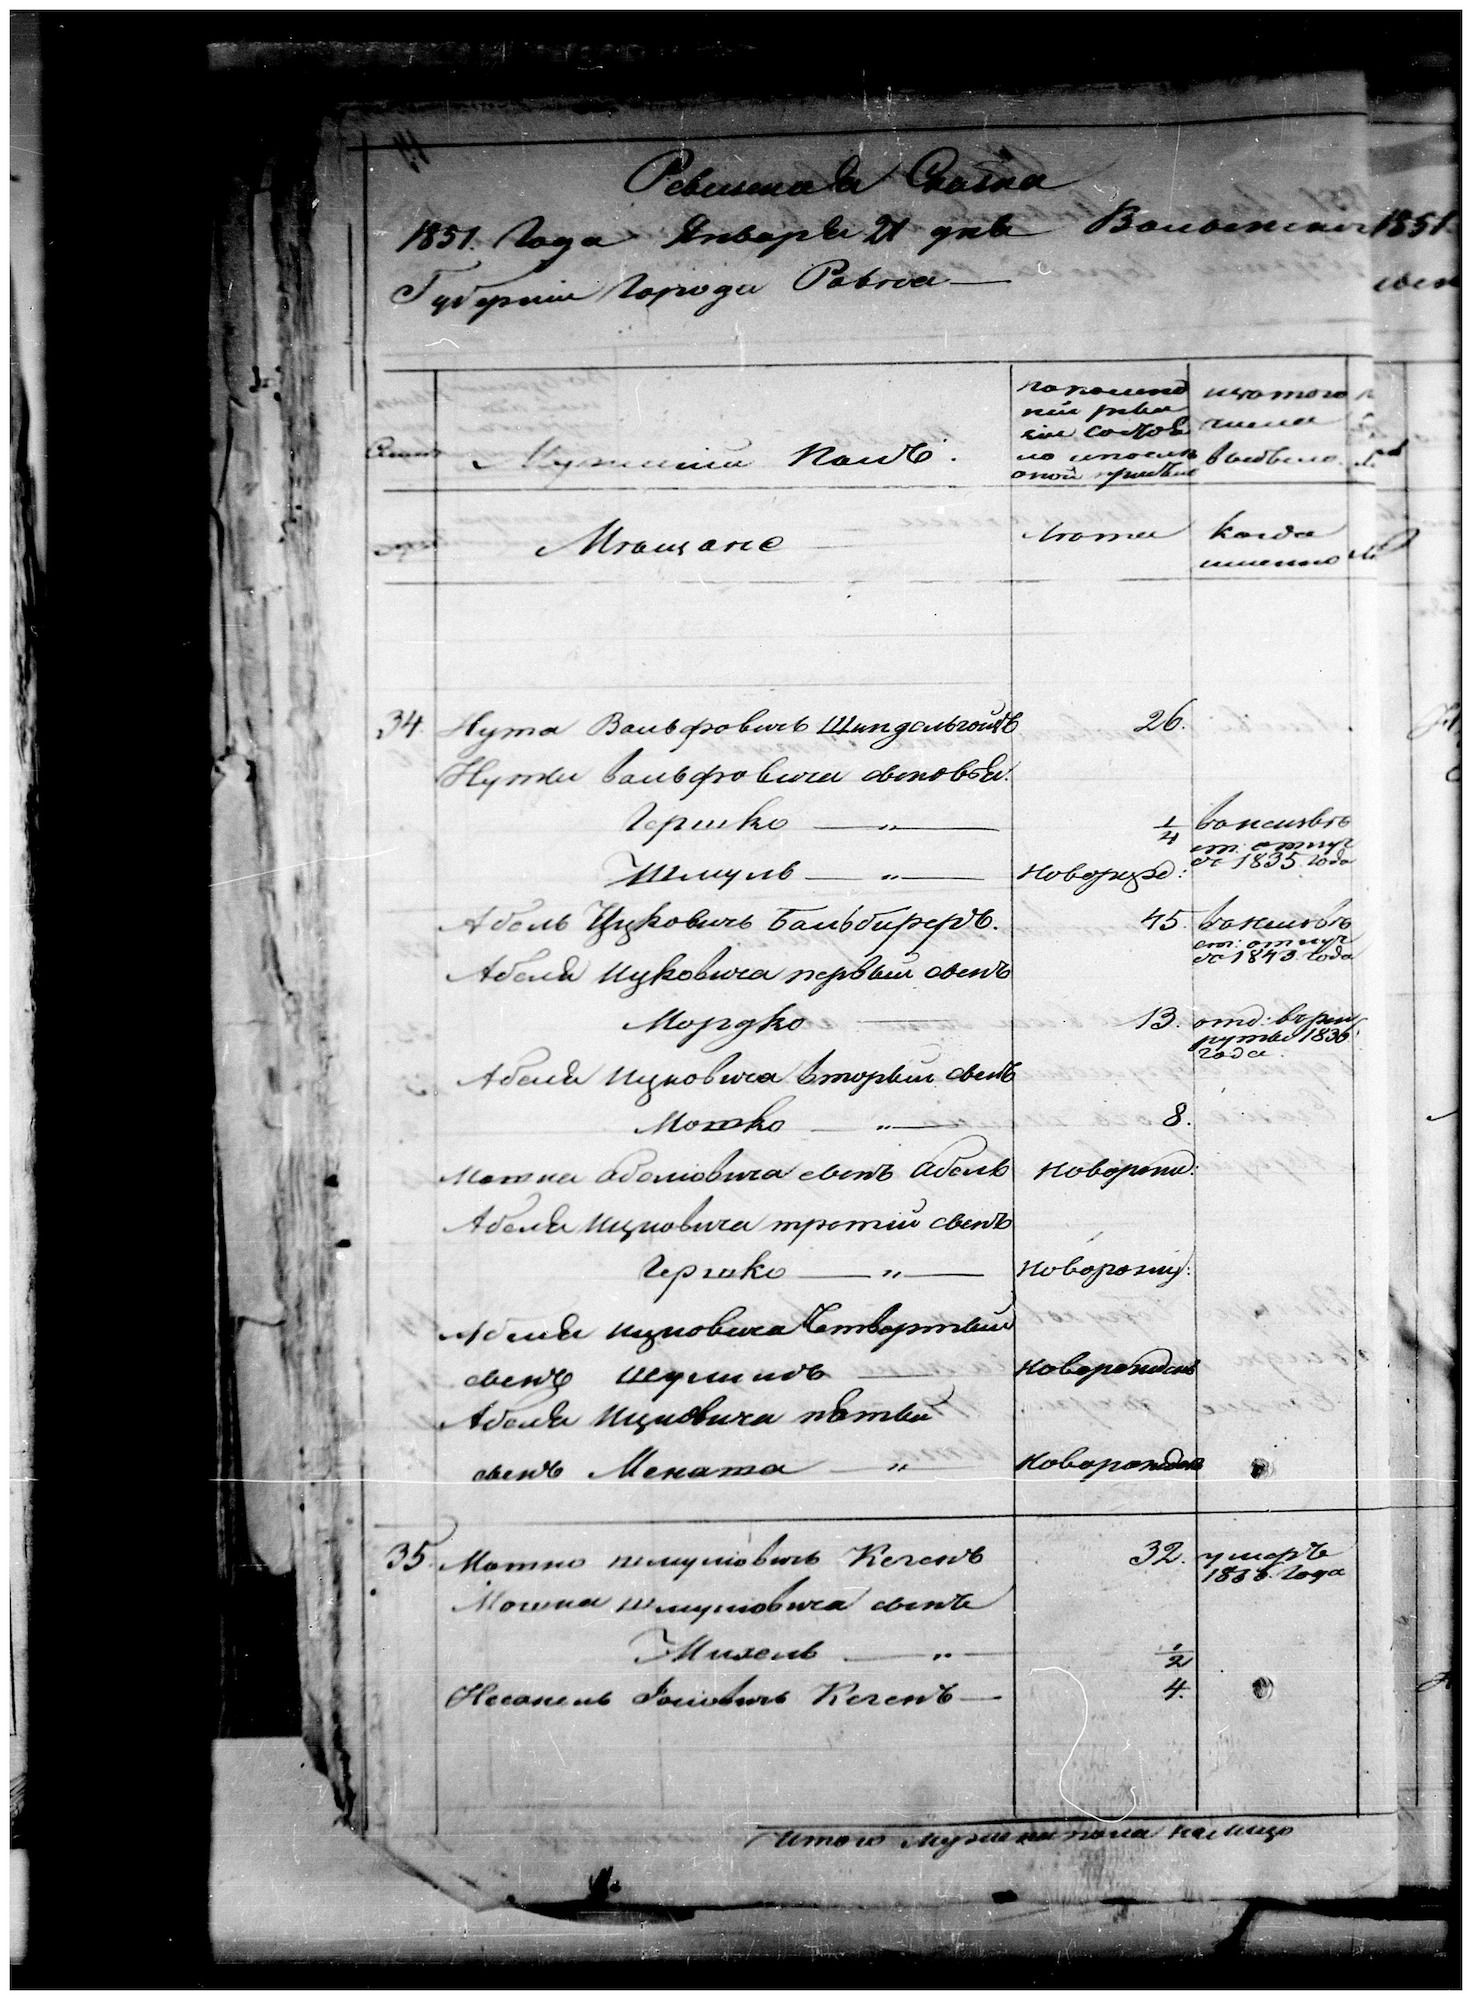 Ревизская Сказка
1851. Года Января 21 дня Волынской
Губернии Города Ровна
1851
Мужеский Полъ.
по последней ревизии состояло и после оной прибыло
изъ того числа выбыло.
Мещане
Лета
когда именно
34. Нута Вольфовичъ Шпидельгойзъ 26.
Нуты Вольфовича сыновья:
Гершко — „ — 1/4
в неизвѣ: от: отлуч: съ 1835 года
Шмуль — „ — новорожд:
Абель Ицковичъ Бальбиреръ. 45.
в неизвѣ: от: отлуч: съ 1843 года
Абеля Ицковича первый сынъ
Мордко — 13. отд: в рекруты 1836 года
Абеля Ицковича вторый сынъ
Мошко — „ — 8.
Мошка Абелиовича сынъ Абель новорожд:
Абеля Ицковича третий сынъ
Гершко — „ — новорожд:
Абеля Ицковича Четвертый
сынъ Шулимъ — новорожденъ
Абеля Ицковича пятый
сынъ Мената — „ новорожденъ
35. Мошко Шмулиовичъ Кегенъ 32. умеръ
Года
Мошка Шмулиовича сынъ
Михель — „ — 1/2
Кегенъ — 4.
Итого мужеска пола налицо